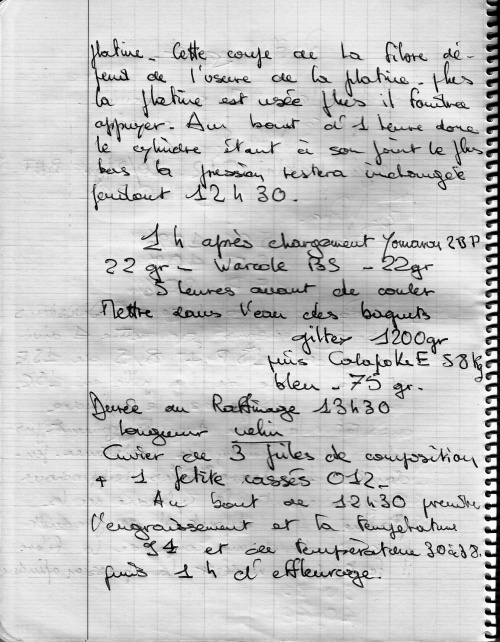 platine. Cette coupe de la fibre dé-
pend de l'usure de la platine. plus
la platine est usée plus il faudra
appuyer. Au bout d'1 heure donc
le cylindre étant à son point le plus
bas la pression restera inchangée
pendant 12 h 30.
1 h après chargement 2BP
22 gr - PBS - 22gr
5 heures avant de couler
Mettre dans l'eau des baquets
giltex 1200gr
puis 58 kg
bleu - 75 gr.
Durée du Raffinage 13h30
longueur velin
Cuvier de 3 piles de composition
+ 1 petite cassés 012.
Au bout de 12h30 prendre
l'engraissement et la température
94 et de température 30 à 38.
puis 1 h d'effleurage.